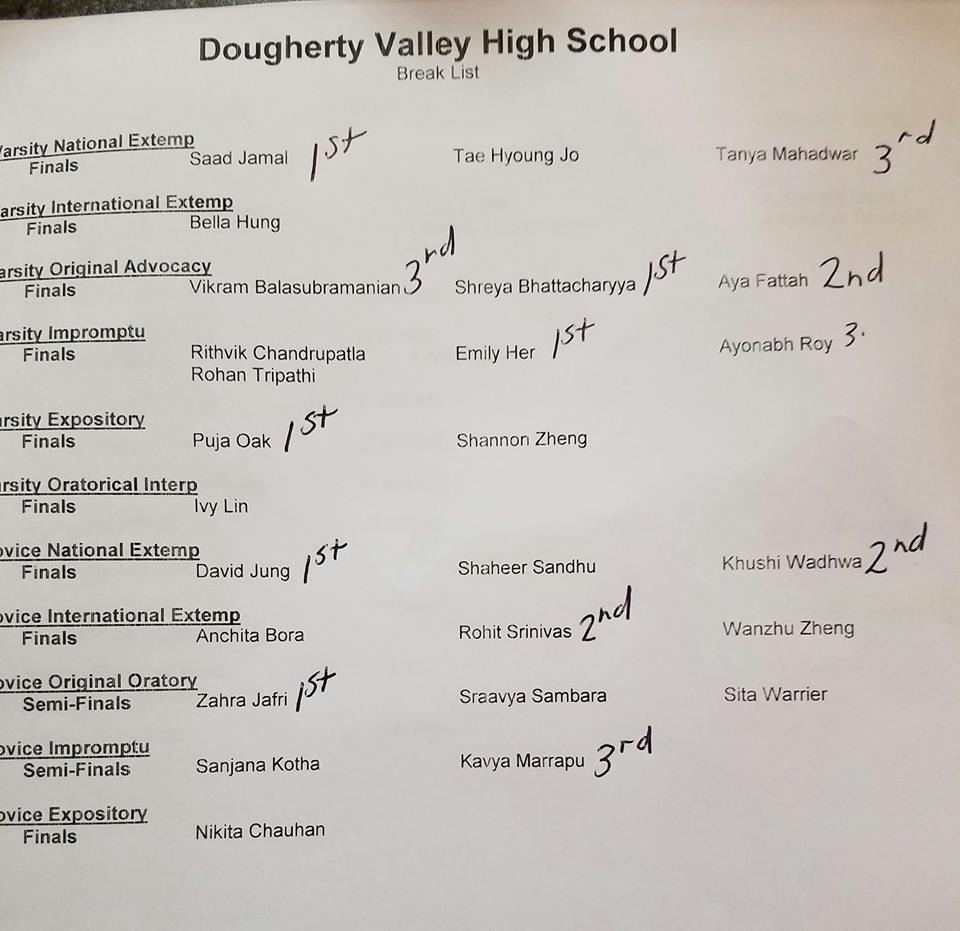 Dougherty Valley High School
Break List
arsity National Extemp
Finals Saad Jamal 1st Tae Hyoung Jo Tanya Mahadwar 3rd
arsity International Extemp
Finals Bella Hung
arsity Original Advocacy
Finals Vikram Balasubramanian 3rd Shreya Bhattacharyya 1st Aya Fattah 2nd
arsity Impromptu
Finals Rithvik Chandrupatla Emily Her 1st Ayonabh Roy 3.
Rohan Tripathi
rsity Expository
Finals Puja Oak 1st Shannon Zheng
rsity Oratorical Interp
Finals Ivy Lin
ovice National Extemp
Finals David Jung 1st Shaheer Sandhu Khushi Wadhwa 2nd
ovice International Extemp
Finals Anchita Bora Rohit Srinivas 2nd Wanzhu Zheng
ovice Original Oratory
Semi-Finals Zahra Jafri 1st Sraavya Sambara Sita Warrier
ovice Impromptu
Semi-Finals Sanjana Kotha Kavya Marrapu 3rd
ovice Expository
Finals Nikita Chauhan